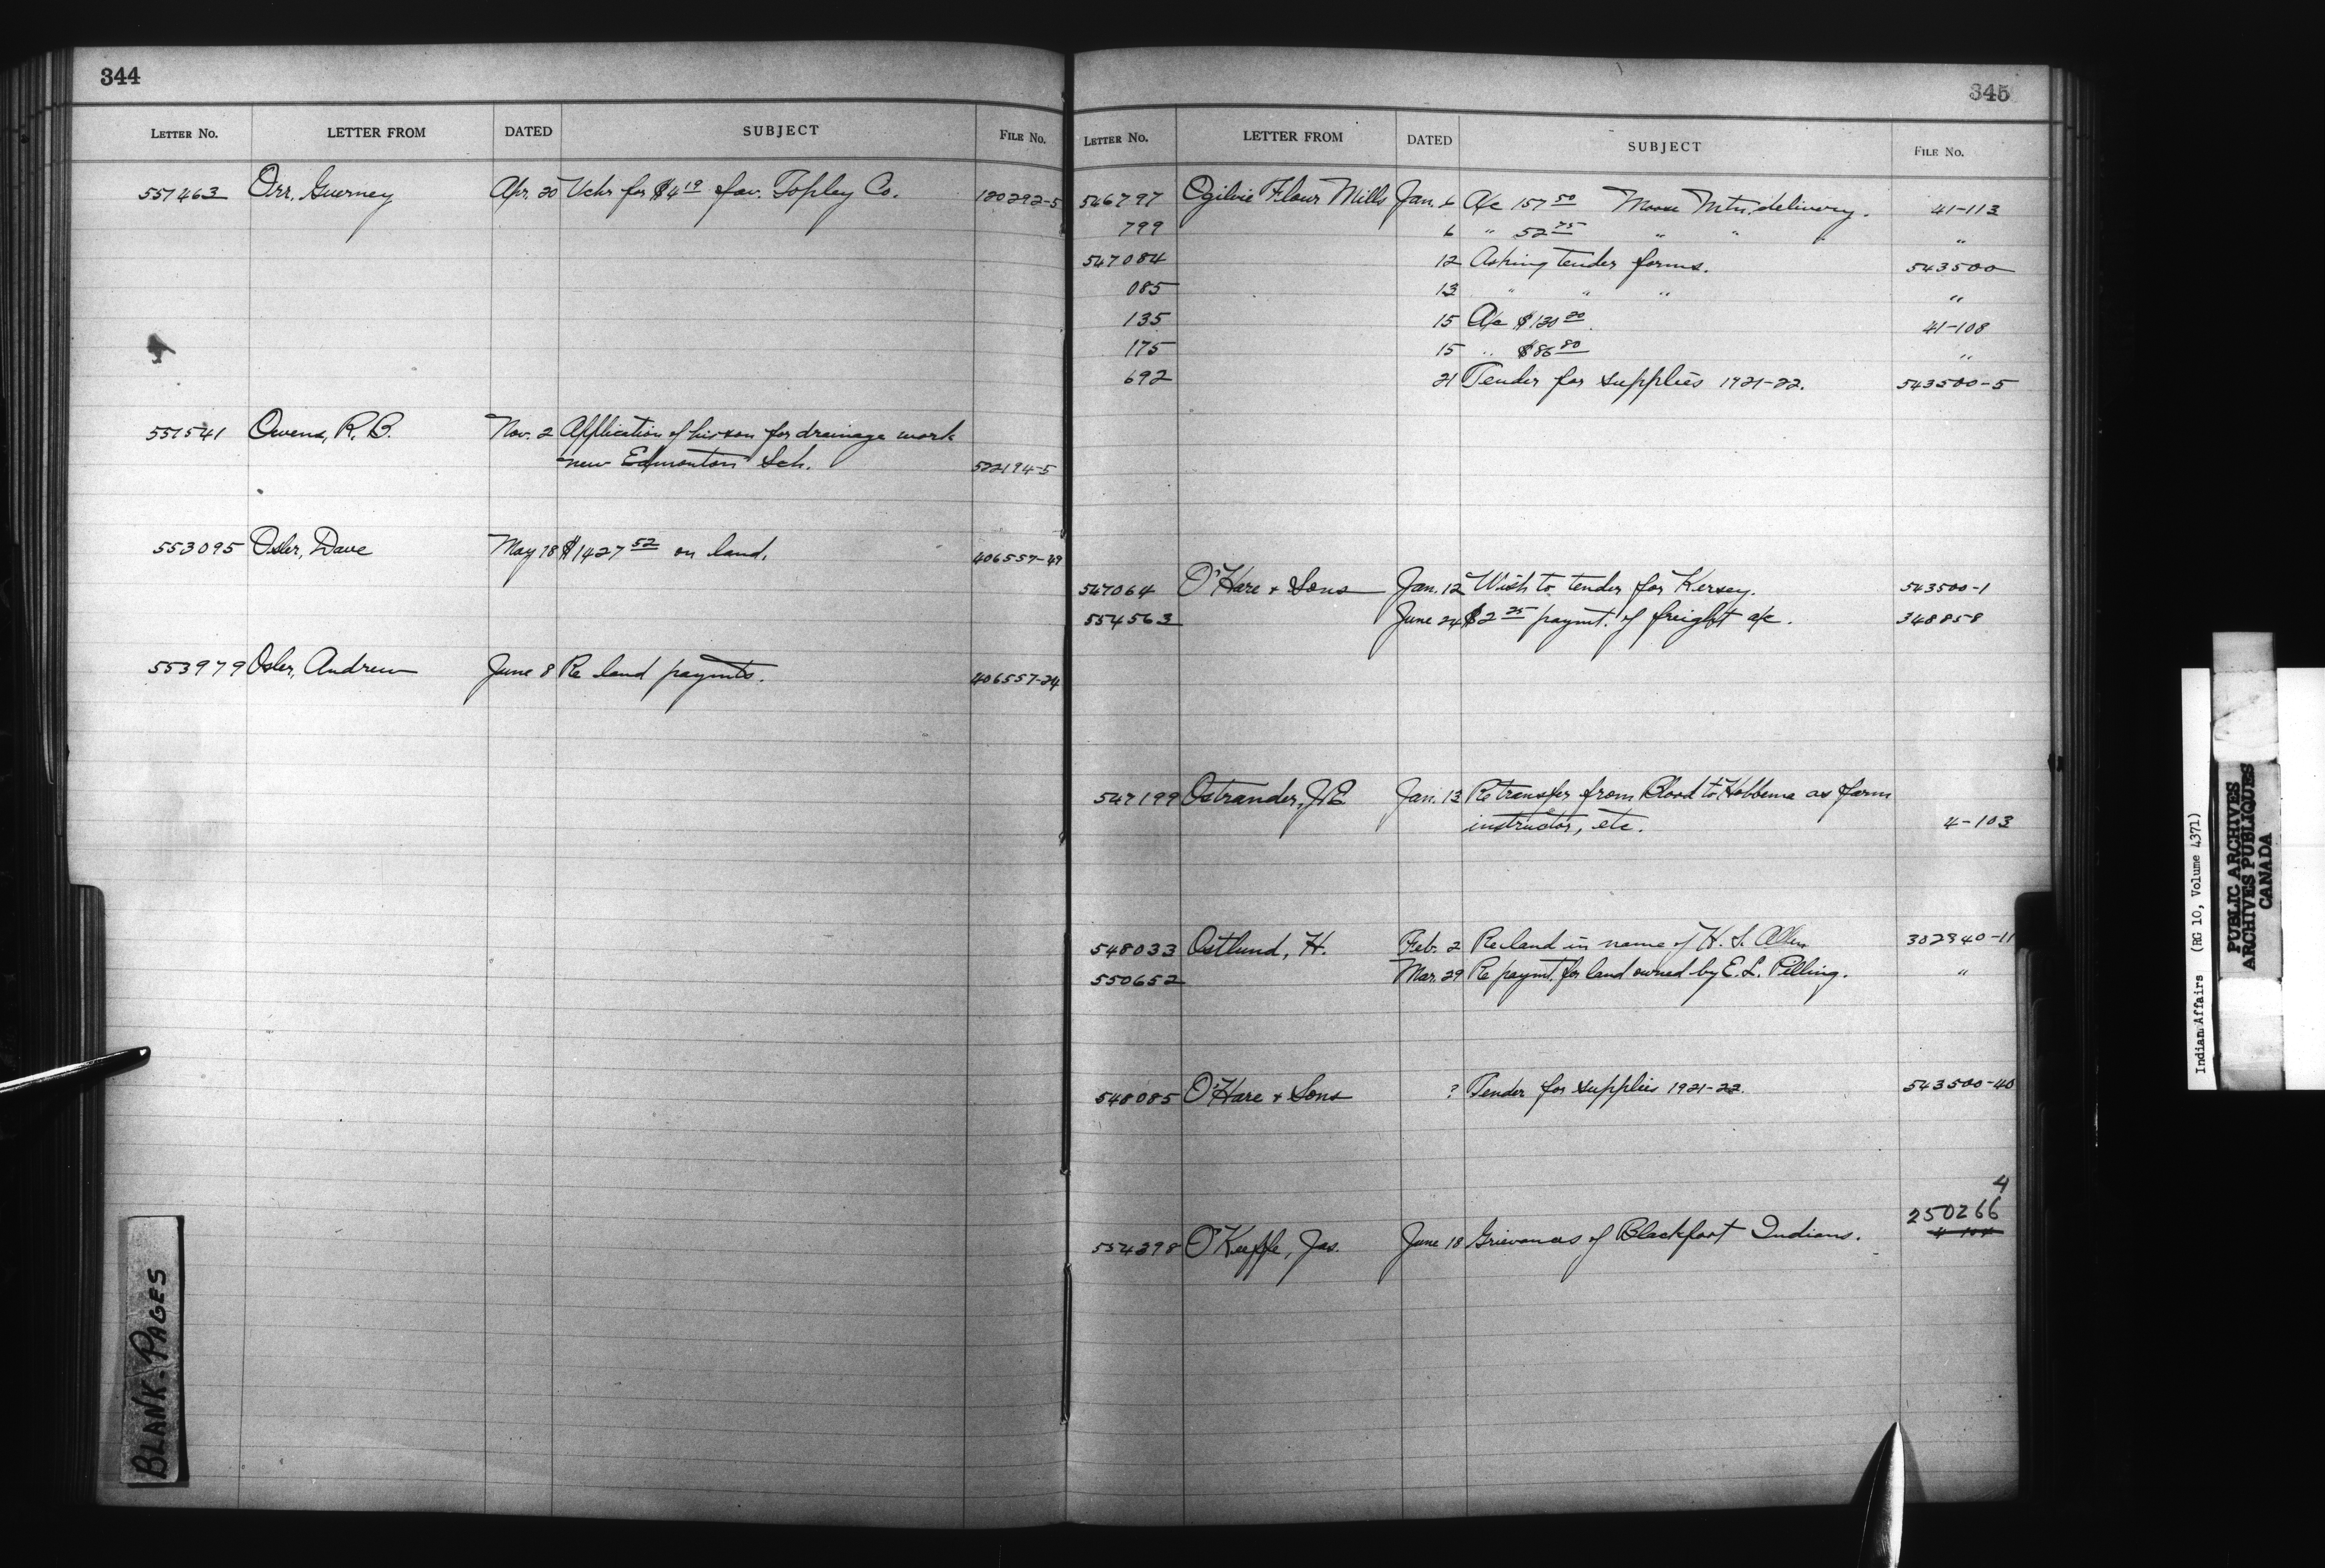 344
LETTER No. LETTER FROM DATED SUBJECT FILE No.
551463 Orr, Guerney Apr. 20 Vchr for $4 19 fav. Topley Co. 120292-5
551541 Owens, R. B. Nov. 2 Application of his son for drainage work
new Edmonton Sch. 522194-5
553095 Osler, Dave May 18 $1427 52 on land. 406557-49
553979 Osler, Andrew June 8 Re land paymts. 406557-24
BLANK-PAGES
345
LETTER No. LETTER FROM DATED SUBJECT FILE No.
546797 Ogilvie Flour Mills Jan. 6 A/c 157 50 Moose Mtn. delivery. 41-113
799 6 " 52 75 " " " "
547084 12 Asking tender forms. 543500
085 13 " " " "
135 15 A/c $130 20 41-108
175 15 " $86 80 "
692 21 Tender for supplies 1921-22. 543500-5
547064 O'Hare & Sons Jan. 12 Wish to tender for Kersey. 543500-1
554563 June 24 $2 25 paymt. of freight a/c. 348858
547199 Ostrander, J E Jan. 13 Re transfer from Blood to Hobbema as farm
instructor, etc. 4-103
548033 Ostlund, H. Feb. 2 Re land in name of H. S. Allen 302340-11
550652 Mar. 29 Re paymt. for land owned by E. L. Pilling. "
548085 O'Hare & Sons ? Tender for supplies 1921-22. 543500-40
4
554298 O'Keeffe, Jas. June 18 Grievances of Blackfoot Indians. 250266
Indian Affairs (RG 10, Volume 4371)
PUBLIC ARCHIVES
ARCHIVES PUBLIQUES
CANADA